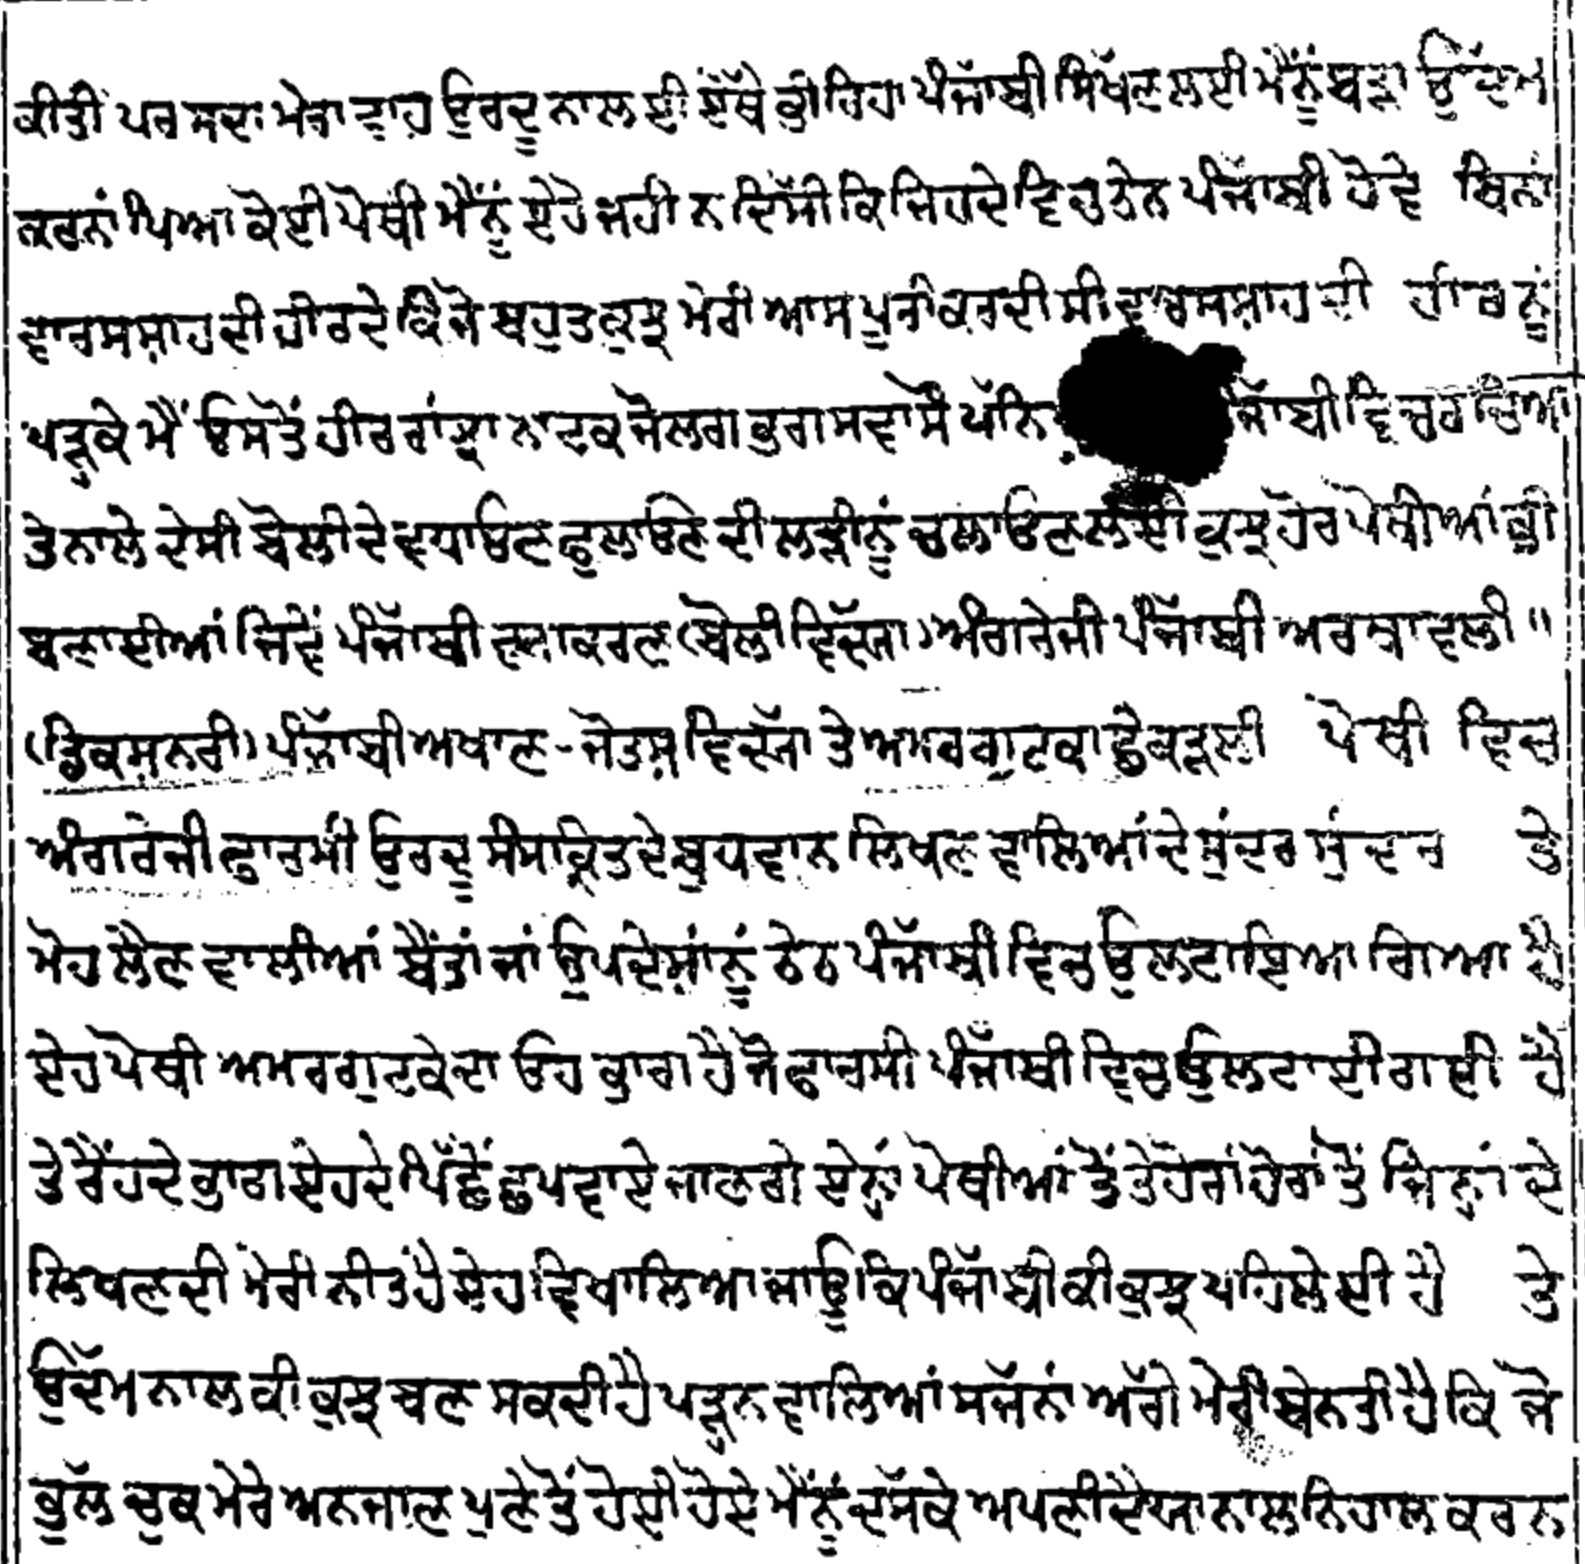 ਕੀਤੀ ਪਰ ਸਦਾ ਮੇਰਾ ਵਾਹ ਉਰਦੂ ਨਾਲ ਈ ਏੱਥੇ ਕੀ ਰਿਹਾ ਪੰਜਾੱਬੀ ਸਿੱਖਣ ਲਈ ਮੈਨੂੰ ਬੜਾ ਉੱਦਮ
ਕਰਨਾਂ ਪਿਆ ਕੋਈ ਪੋਥੀ ਮੈਨੂੰ ਏਹੋ ਜਹੀ ਨ ਦਿੱਸੀ ਕਿ ਜਿਹਦੇ ਵਿਚ ਠੇਠ ਪੰਜਾੱਬੀ ਹੋਵੇ ਬਿਨਾਂ
ਵਾਰਸਸ਼ਾਹ ਦੀ ਹੀਰ ਦੇ ਕਿ ਜੋ ਬਹੁਤ ਕੁਝ ਮੇਰੀ ਆਸ ਪੁਰੀ ਕਰਦੀ ਸੀ ਵਾਰਸਸ਼ਾਹ ਦੀ ਹੀਰ ਨੂੰ
ਪੜ੍ਹਕੇ ਮੈਂ ਉਸ ਤੋਂ ਹੀਰ ਰਾਂਝਾ ਨਾਟਕ ਜੋ ਲਗ ਭੁਗ ਸਵਾ ਸੌ ਪੱਨੇ ਜਾੱਬੀ ਵਿਚ ਰਚਿਆ
ਤੇ ਨਾਲੇ ਦੇਸੀ ਬੋਲੀ ਦੇ ਵਧਾਉਣ ਫੁਲਾਉਣ ਦੀ ਲੜੀ ਨੂੰ ਚਲਾਉਣ ਲਈ ਕੁਝ ਹੋਰ ਪੋਥੀਆਂ ਵੀ
ਬਣਾਈਆਂ ਜਿਵੇਂ ਪੰਜਾੱਬੀ ਵਯਾਕਰਣ (ਬੋਲੀ ਵਿੱਦਯਾ) ਅੰਗਰੇਜੀ ਪੰਜਾੱਬੀ ਅਰਥਾਵਲੀ "
(ਡਿਕਸ਼ਨਰੀ) ਪੰਜਾੱਬੀ ਅਖਾਣ - ਜੋਤਸ਼ ਵਿੱਦਯਾ ਤੇ ਅਮਰ ਗੁਟਕਾ ਛੇਕੜਲੀ ਪੋਥੀ ਵਿਚ
ਅੰਗਰੇਜੀ ਫਾਰਸੀ ਉਰਦੂ ਸੰਸਕ੍ਰਿਤ ਦੇ ਬੁਧਵਾਨ ਲਿਖਣ ਵਾਲਿਆਂ ਦੇ ਸੁੰਦਰ ਸੁੰਦਰ ਤੇ
ਮੋਹ ਲੈਣ ਵਾਲੀਆਂ ਬੈਂਤਾਂ ਜਾਂ ਉਪਦੇਸ਼ਾਂ ਨੂੰ ਠੇਠ ਪੰਜਾੱਬੀ ਵਿਚ ਉਲਟਾਇਆ ਗਿਆ ਹੈ
ਏਹ ਪੋਥੀ ਅਮਰ ਗੁਟਕੇ ਦਾ ਓਹ ਭਾਗ ਹੈ ਜੋ ਫਾਰਸੀ ਪੰਜਾੱਬੀ ਵਿਚ ਉਲਟਾਈ ਗਈ ਹੈ
ਤੇ ਰੈਂਹਦੇ ਭਾਗ ਏਹਦੇ ਪਿੱਛੋਂ ਛਪਵਾਏ ਜਾਣਗੇ ਏਨ੍ਹਾਂ ਪੋਥੀਆਂ ਤੋਂ ਤੇ ਹੋਰਨਾਂ ਹੋਰਾਂ ਤੋਂ ਜਿਨ੍ਹਾਂ ਦੇ
ਲਿਖਣ ਦੀ ਮੇਰੀ ਨੀਤ ਹੈ ਏਹ ਵਿਖਾਲਿਆ ਜਾਊ ਕਿ ਪੰਜਾੱਬੀ ਕੀ ਕੁਝ ਪਹਿਲੇ ਈ ਹੈ ਤੇ
ਉੱਦਮ ਨਾਲ ਕੀ ਕੁਝ ਬਣ ਸਕਦੀ ਹੈ ਪੜ੍ਹਨ ਵਾਲਿਆਂ ਸੱਜਨਾਂ ਅੱਗੇ ਮੇਰੀ ਬੇਨਤੀ ਹੈ ਕਿ ਜੋ
ਭੁੱਲ ਚੁਕ ਮੇਰੇ ਅਨਜਾਣ ਪੁਣੇ ਤੋਂ ਹੋਈ ਹੋਏ ਮੈਨੂੰ ਦੱਸਕੇ ਅਪਣੀ ਦੈਆ ਨਾਲ ਨਿਹਾਲ ਕਰਨ